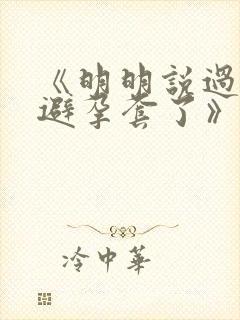 《明明說過
避孕套了》
冷中華